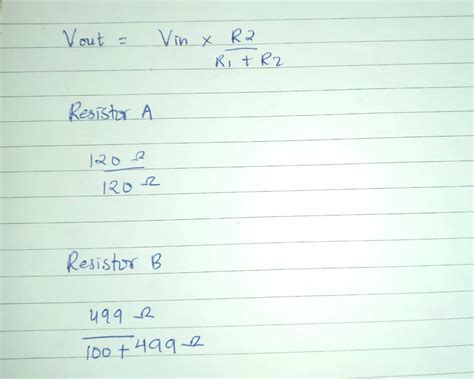 Vout = Vin x R2
R1 + R2
Resistor A
120 Ω
120 Ω
Resistor B
499 Ω
100 + 499 Ω